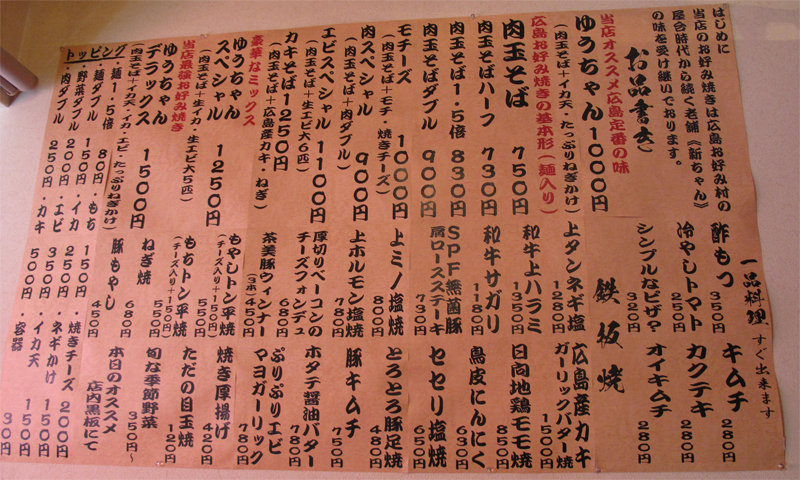 はじめに
当店のお好み焼きは広島お好み村の
屋台時代から続く老舗《新ちゃん》
の味を受け継いでおります。
お品書き
当店オススメ広島定番の味
ゆうちゃん 1000円
(肉玉そば+イカ天・たっぷりねぎかけ)
広島お好み焼きの基本形(麺入り)
肉玉そば 750円
肉玉そばハーフ 730円
肉玉そば1.5倍 830円
肉玉そばダブル 900円
モチーズ 1000円
(肉玉そば+モチ・焼きチーズ)
肉スペシャル 900円
(肉玉そば+肉ダブル)
エビスペシャル 1100円
(肉玉そば+生エビ大6匹)
カキそば 1250円
(肉玉そば+広島産カキ・ねぎ)
豪華なミックス
ゆうちゃん
スペシャル 1250円
(肉玉そば+生イカ・生エビ大5匹)
当店最強お好み焼き
ゆうちゃん
デラックス 1500円
(肉玉そば+イカ天・イカ・エビ・たっぷりねぎかけ)
トッピング
・麺1.5倍 80円
・麺ダブル 150円
・野菜ダブル 200円
・肉ダブル 250円
・もち 150円
・イカ 250円
・エビ 350円
・カキ 500円
・焼きチーズ 200円
・ネギかけ 150円
・イカ天 150円
・容器 30円
一品料理 すぐ出来ます
酢もつ 350円
冷やしトマト 250円
シンプルなピザ? 320円
キムチ 280円
カクテキ 280円
オイキムチ 280円
鉄板焼
上タンネギ塩 1280円
和牛上ハラミ 1350円
和牛サガリ 1180円
SPF無菌豚
肩ロースステーキ 730円
上ミノ塩焼 800円
上ホルモン塩焼 780円
厚切りベーコンの
チーズフォンデュ 680円
茶美豚ウィンナー
(3本)450円
もやしトン平焼
(チーズ入り+150円) 550円
もちトン平焼
(チーズ入り+150円) 550円
ねぎ焼 680円
豚もやし 450円
広島産カキ
ガーリックバター焼 1500円
日向地鶏モモ焼 850円
鳥皮にんにく 630円
セセリ塩焼 650円
とろとろ豚足焼 480円
豚キムチ 750円
ホタテ醤油バター 780円
ぷりぷりエビ
マヨガーリック 780円
焼き厚揚げ 420円
ただの目玉焼 120円
旬な季節野菜 350円~
本日のオススメ
店内黒板にて